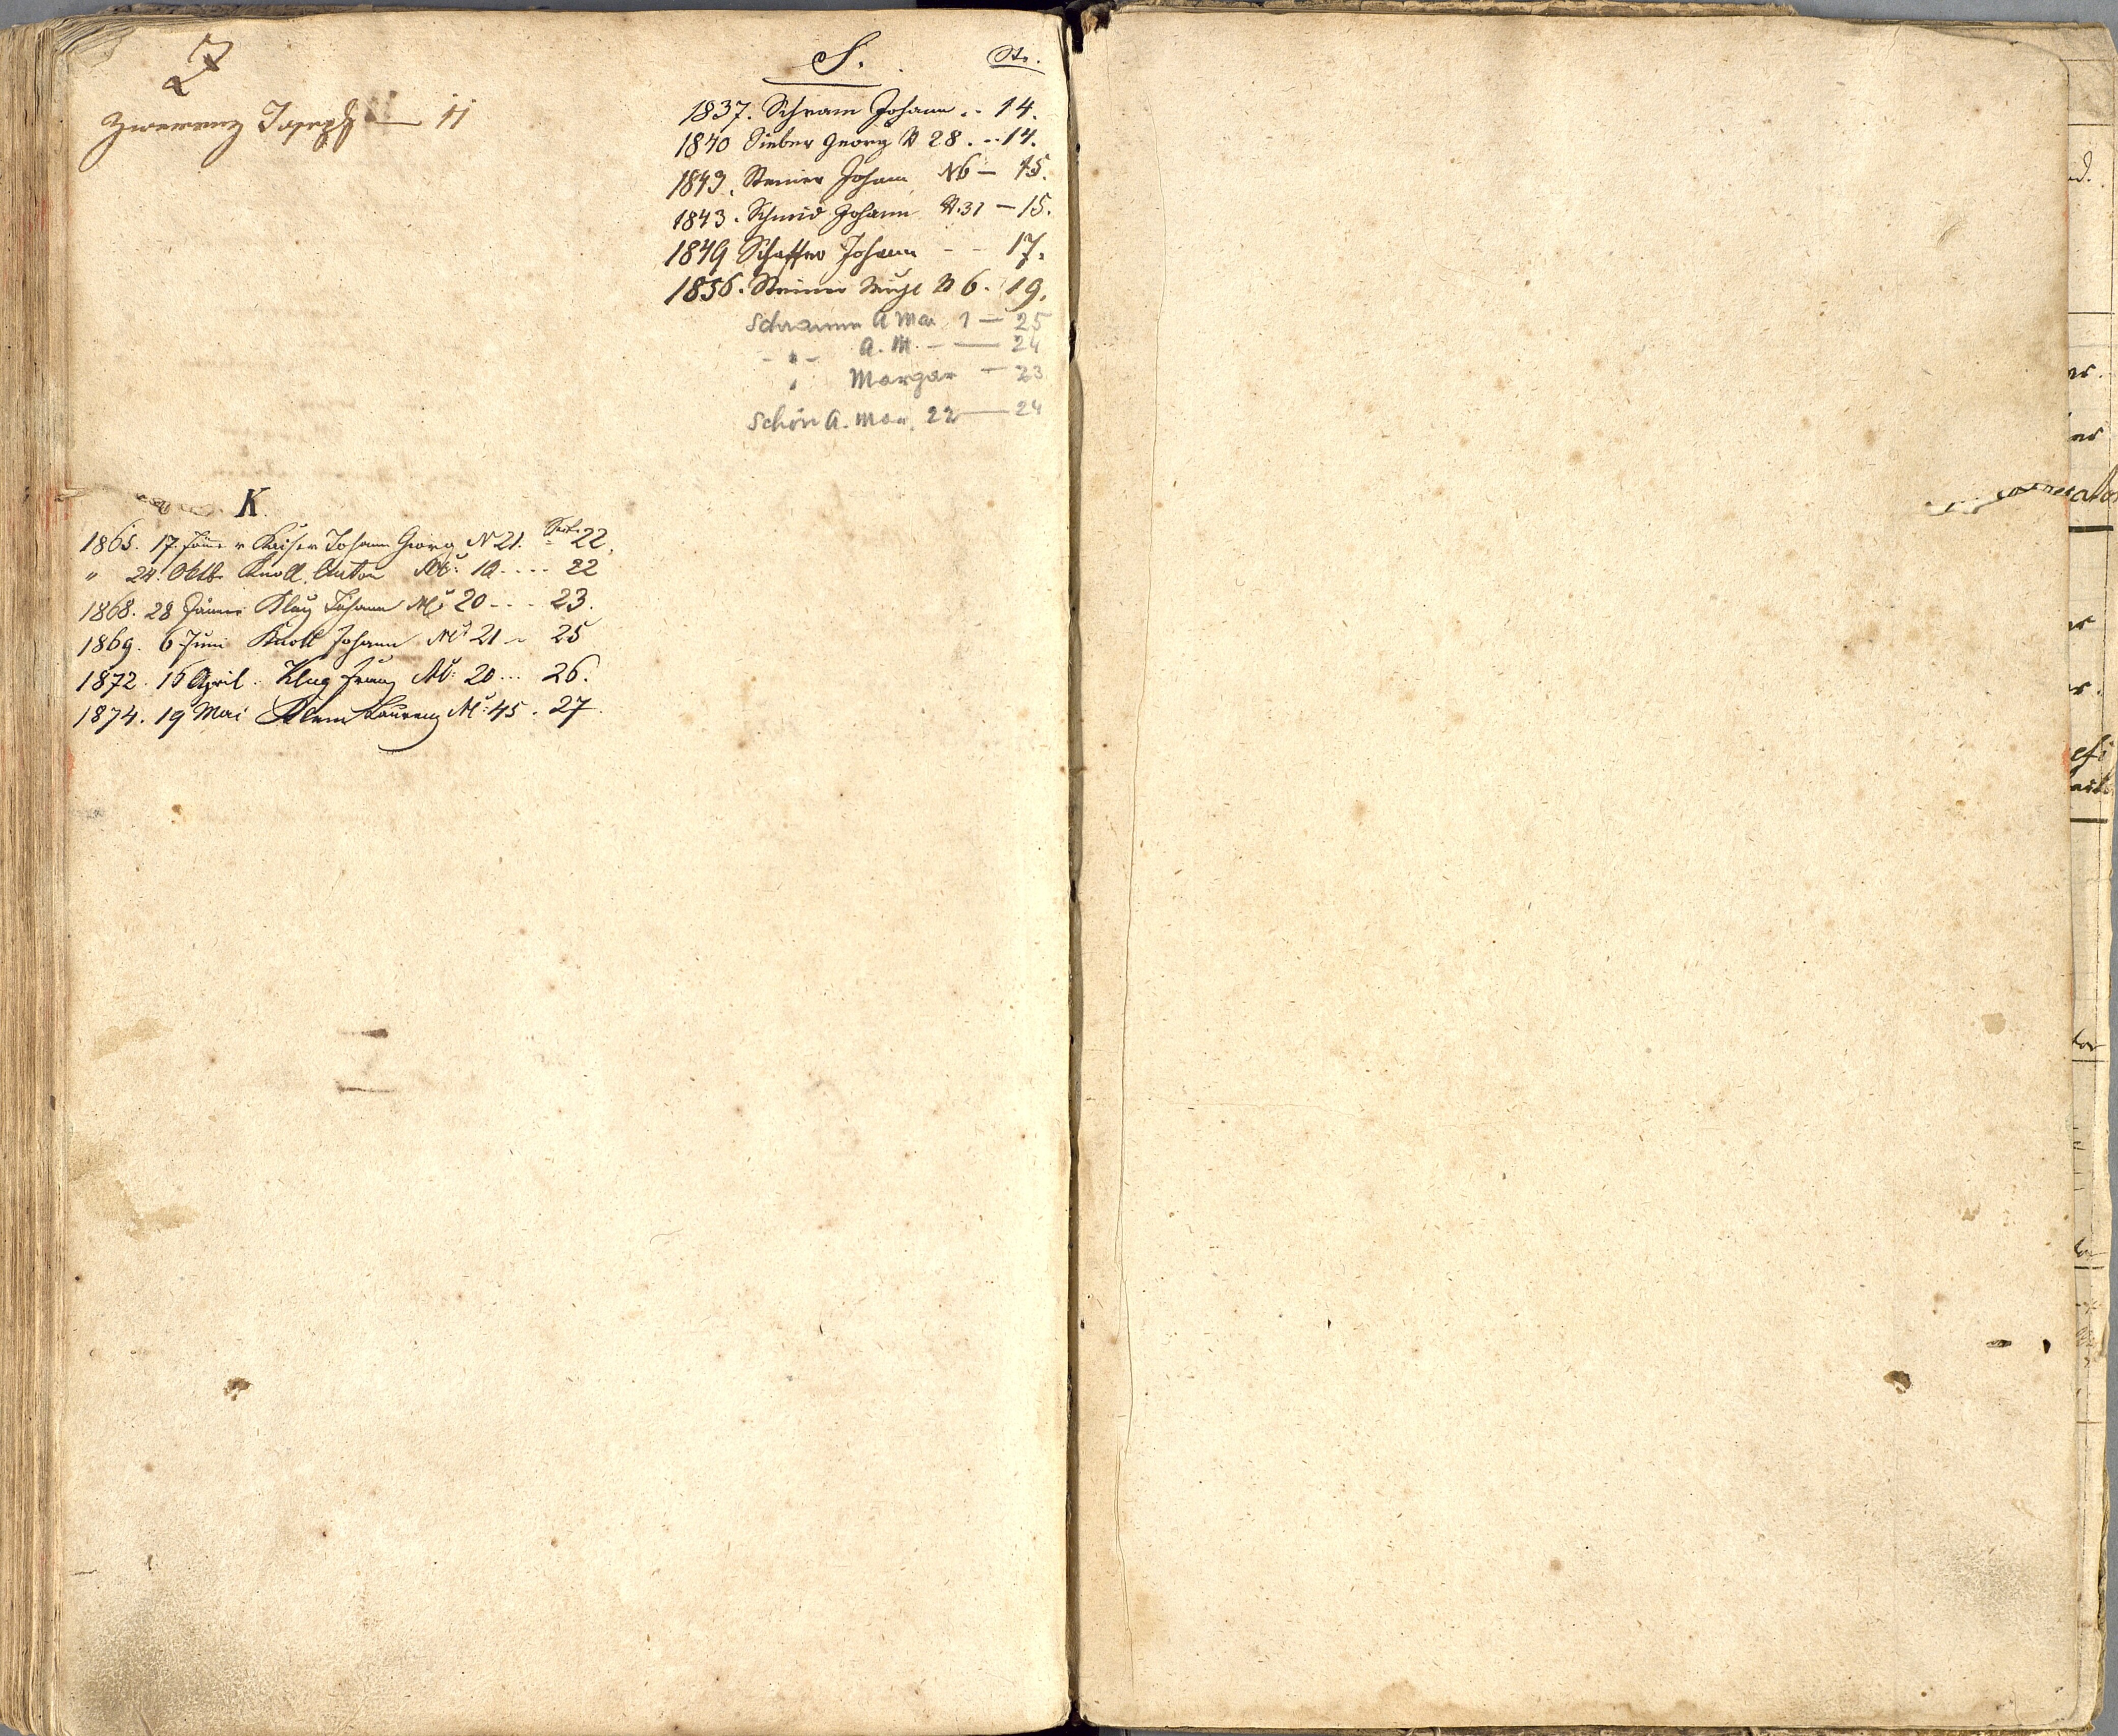 Z
Zwerenz Joseph — 11
S.
St.
1837. Schram Johann .. 14.
1840 Sieber Georg N 28 . .. 14.
1843. Steiner Johann N6 — 15.
1843. Schmid Johann N.31 — 15.
1849 Schaffer Johann - - 17.
1856. Steiner N 6. 19.
Schramm A Mar 1 — 25
- " - A. M. — — 24
" Margar — 23
Schön A. Mar. 22 — 24
K.
1865. 17. Jänner Kaiser Johann Georg N 21. Seite 22.
" 24. Oktb. Knoll Anton No. 19 .... 22
1868. 28 Jänner Klug Johann No 20 - - - 23.
1869. 6 Juni Knoll Johann No 21 - 25
1872. 16 April. Klug Franz No: 20 ... 26.
1874. 19 Mai Klem Laurenz No: 45 . 27.